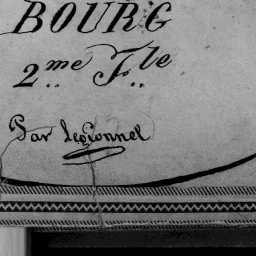 BOURG
2.me F.lle
Par Leçonnel